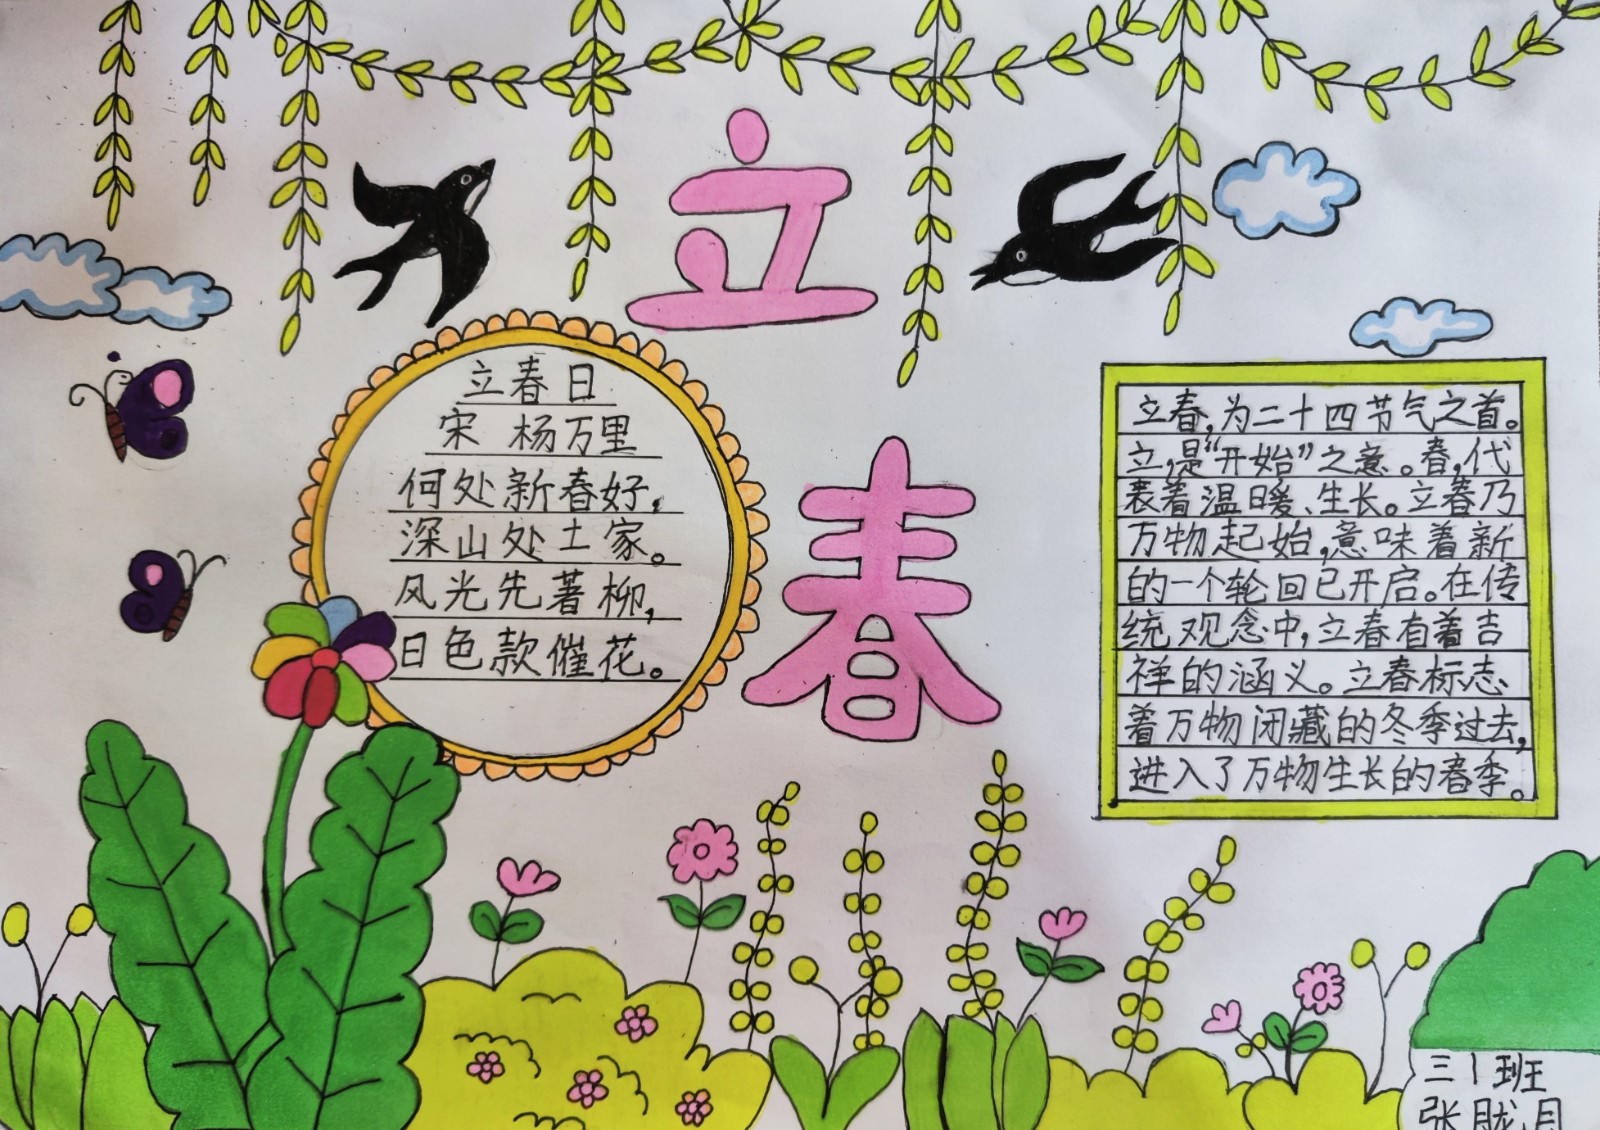 立
春
立春日
宋 杨万里
何处新春好,
深山处士家。
风光先著柳,
日色款催花。
立春,为二十四节气之首。
立,是“开始”之意。春,代
表着温暖、生长。立春乃
万物起始,意味着新
的一个轮回已开启。在传
统观念中,立春有着吉
祥的涵义。立春标志
着万物闭藏的冬季过去,
进入了万物生长的春季。
三1班
张胧月